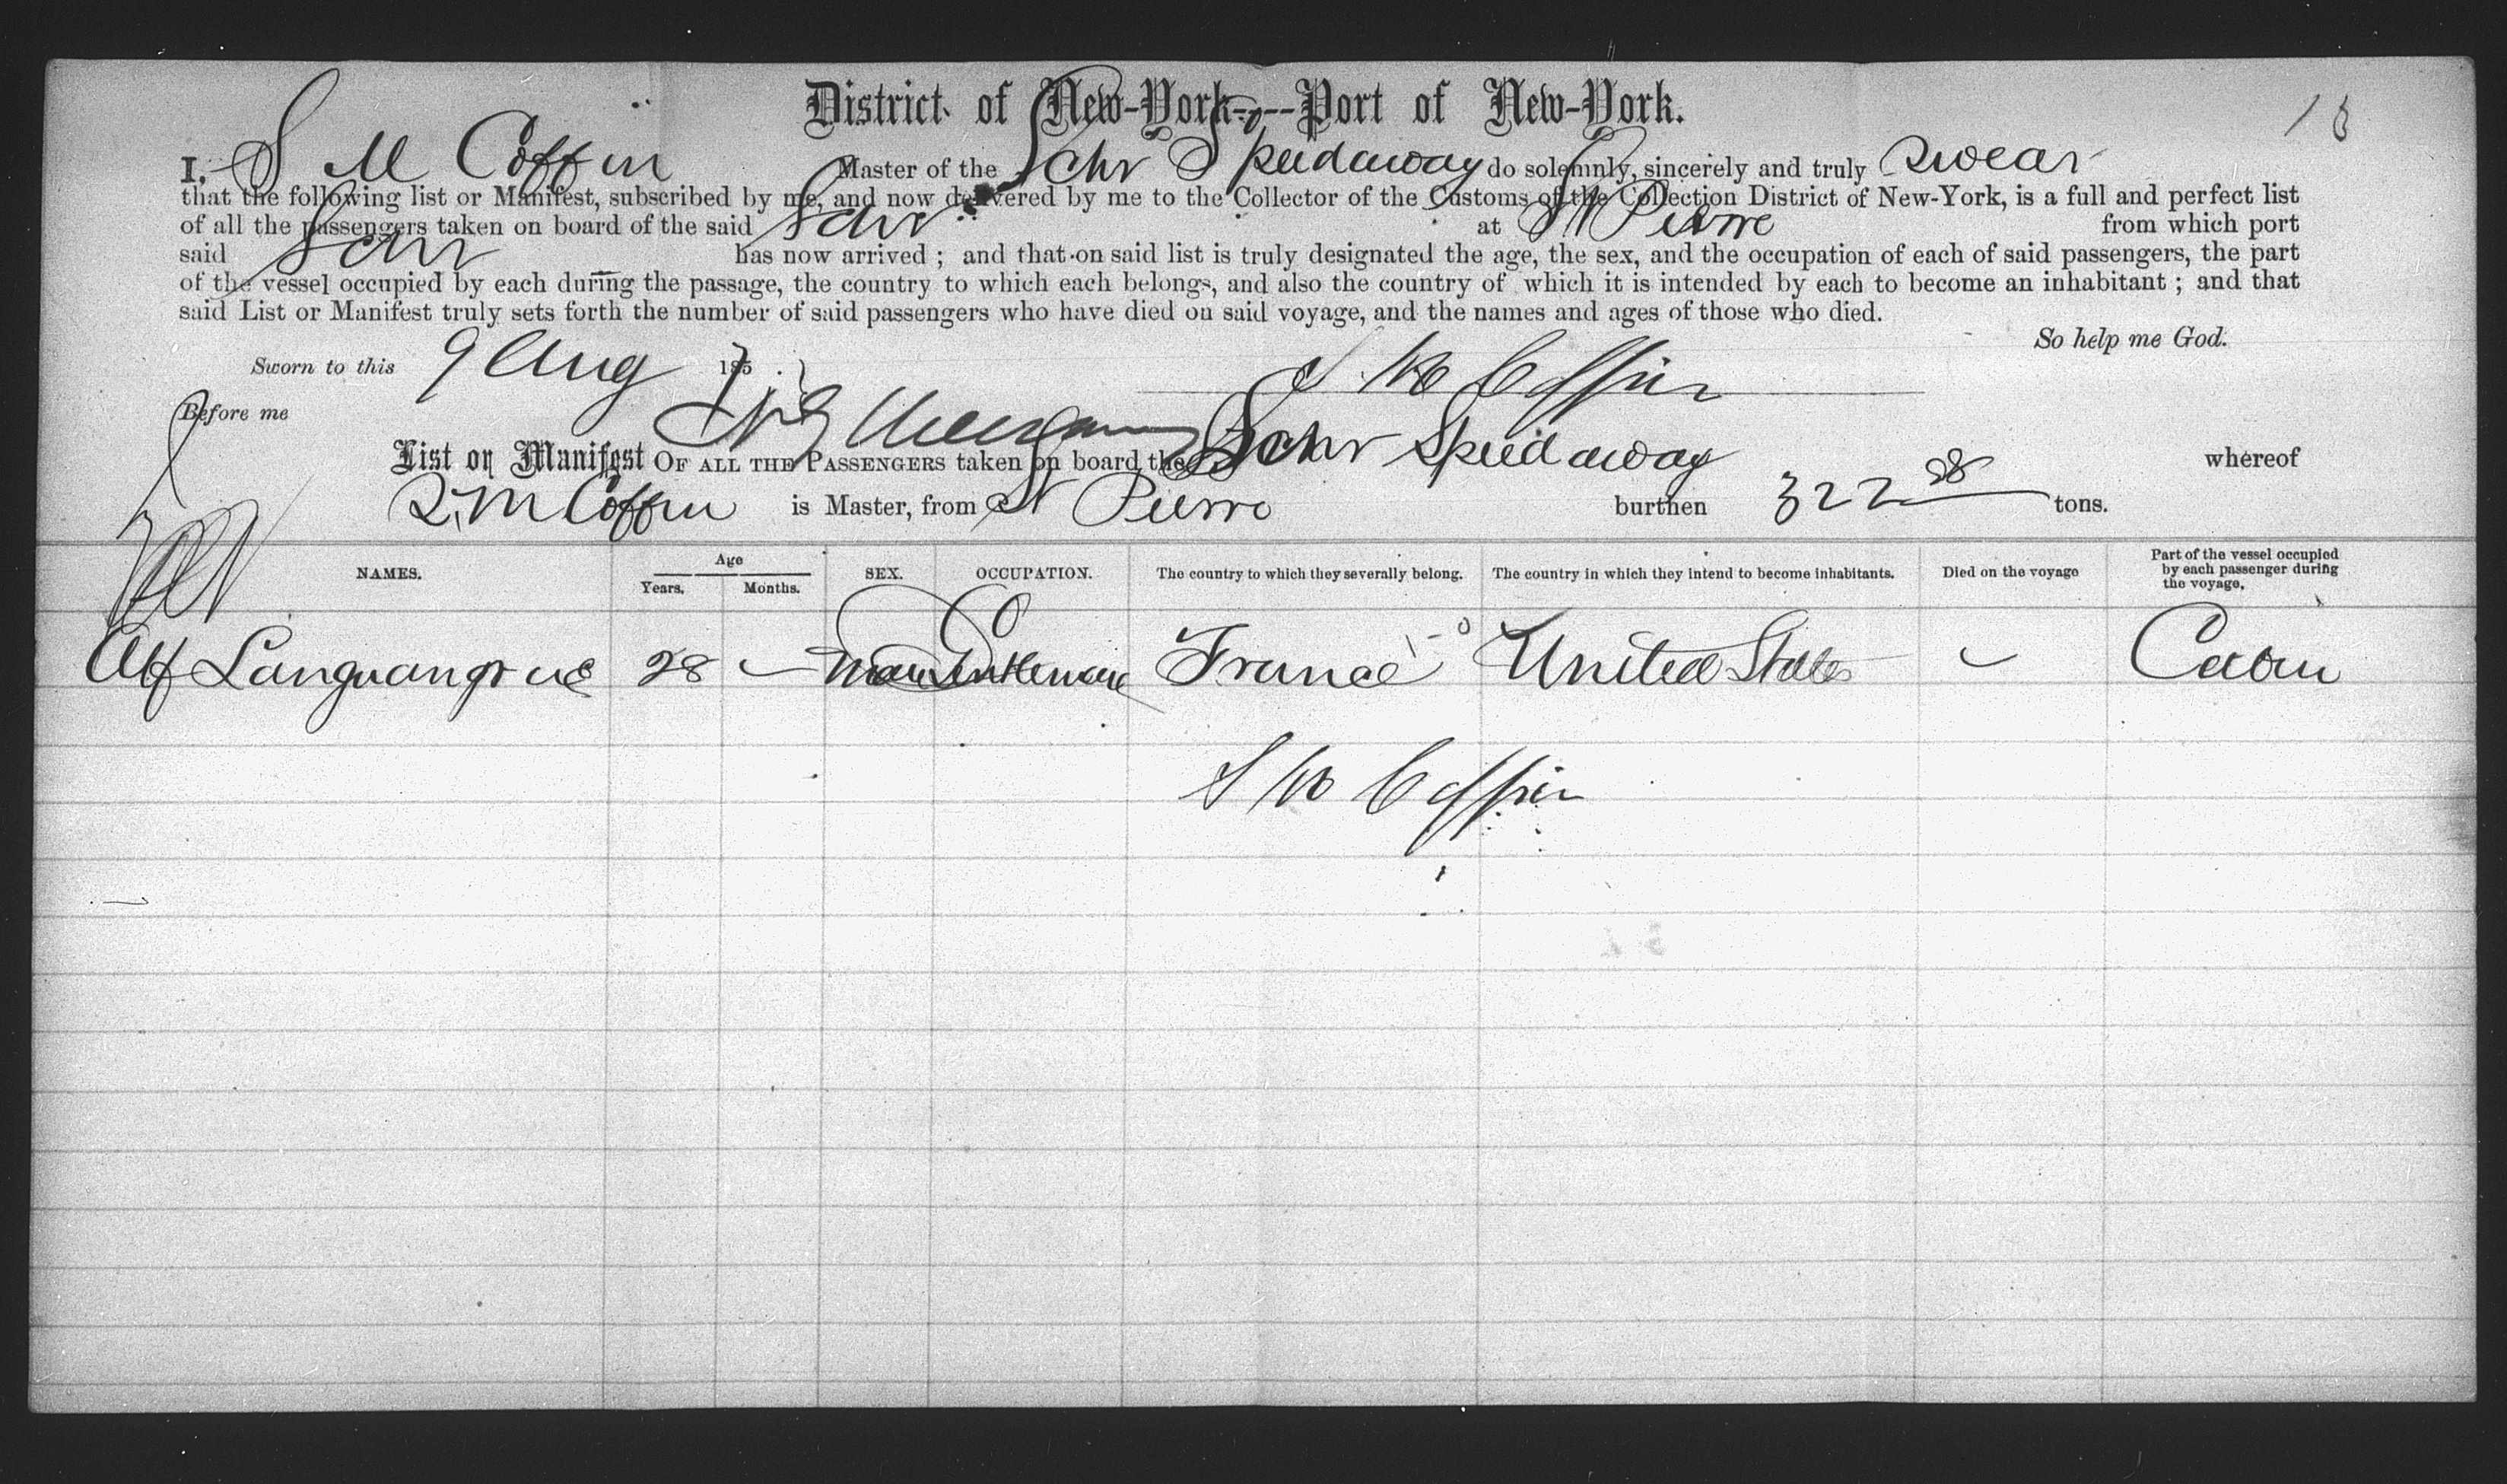 District of New-York---Port of New-York.
I, S M Coffin Master of the Schr Speedaway do solemnly, sincerely and truly swear
that the following list or Manifest, subscribed by me, and now delivered by me to the Collector of the Customs of the Collection District of New-York, is a full and perfect list
of all the passengers taken on board of the said Schr at St Pierre from which port
said Schr has now arrived ; and that on said list is truly designated the age, the sex, and the occupation of each of said passengers, the part
of the vessel occupied by each during the passage, the country to which each belongs, and also the country of which it is intended by each to become an inhabitant ; and that
said List or Manifest truly sets forth the number of said passengers who have died on said voyage, and the names and ages of those who died.
So help me God.
Sworn to this 9 Aug 185 S M Coffin
Before me
List or Manifest OF ALL THE PASSENGERS taken on board the Schr Speedaway whereof
S. M Coffin is Master, from St Pierre burthen 322 28 tons.
NAMES. Age Years. Months. SEX. OCCUPATION. The country to which they severally belong. The country in which they intend to become inhabitants. Died on the voyage Part of the vessel occupied by each passenger during the voyage.
Alf 28 — man Gentleman France United States — Cabin
S M Coffin